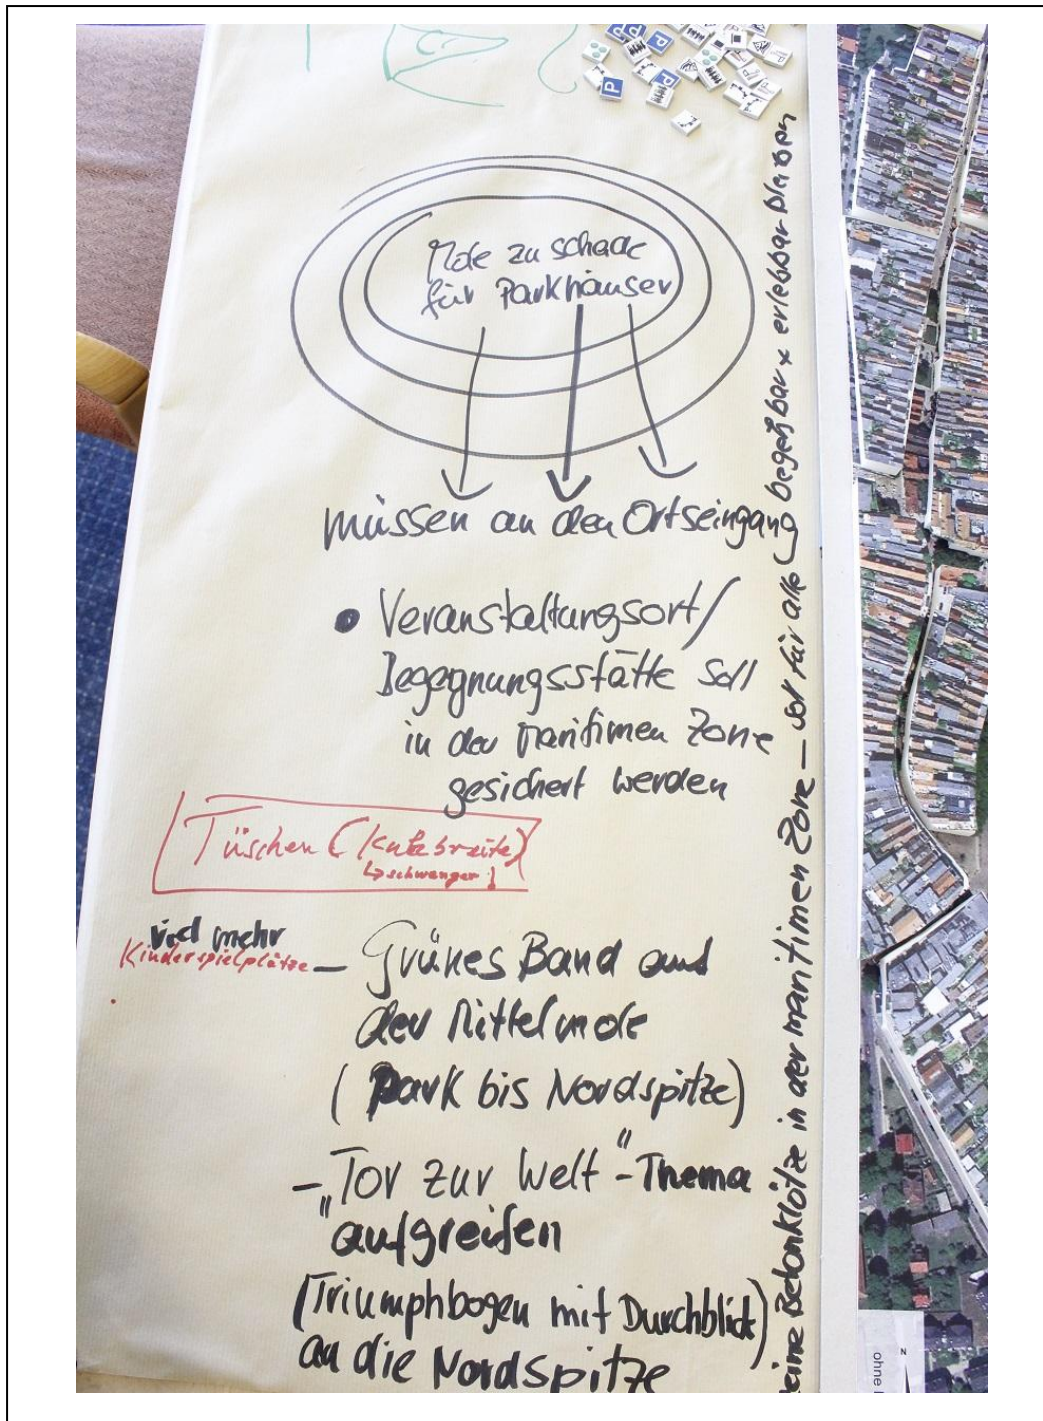 Mole zu schade
für Parkhäuser
müssen an den Ortseingang
• Veranstaltungsort/
Begegnungsstätte soll
in der maritimen Zone
gesichert werden
Tüschen (Katzbreite)
↳ schwanger!
viel mehr
Kinderspielplätze
– Grünes Band auf
der Mittelmole
(Park bis Nordspitze)
– „Tor zur Welt“ - Thema
aufgreifen
(Triumphbogen mit Durchblick)
an die Nordspitze
eine Betonklötze in der maritimen Zone — soll für alle begehbar & erlebbar bleiben
P
P
P
P
N
ohne